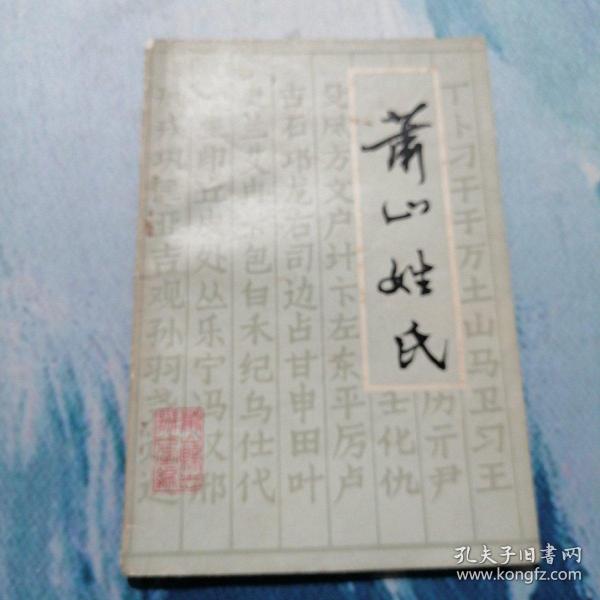 萧山姓氏
丁卜刁干于万土山马卫习王
历亓尹
壬化仇
方文卢计卞左东平厉卢
古石邛龙右司边占甘申田叶
包白禾纪乌仕代
印丘 处丛乐宁冯汉邢
巩 亚吉观孙羽
孔夫子旧书网
www.kongfz.com